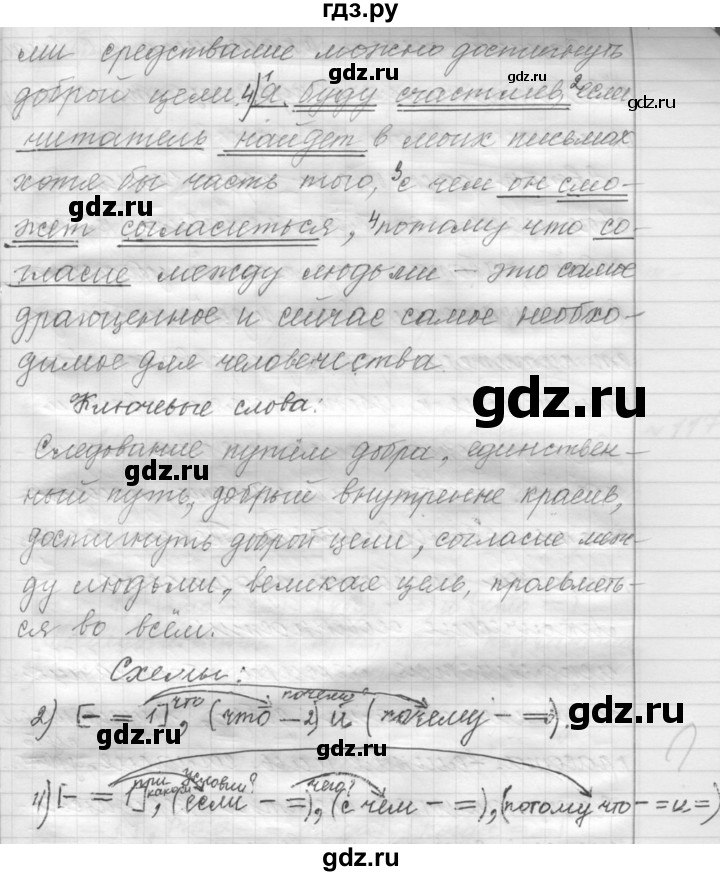 гдз.ру
ми средствами можно достигнуть
доброй цели. 4) ¹Я буду счастлив, ²если
читатель найдет в моих письмах
хотя бы часть того, ³с чем он смо-
жет согласиться, ⁴потому что со-
гласие между людьми – это самое
драгоценное и сейчас самое необхо-
димое для человечества.
Ключевые слова:
Следование путём добра, единствен-
ный путь, добрый внутренне красив,
достигнуть доброй цели, согласие меж-
ду людьми, великая цель, проявлять-
ся во всём.
Схемы:
что почему?
2) [– = 1], (что – 2) и (почему – =).
при каком условии? чего?
4) [– = 1], (если – =), (с чем – =), (потому что – = и =)
gdz.ru
gdz.ru
gdz.ru
gdz.ru
gdz.ru
gdz.ru
gdz.ru
gdz.ru
gdz.ru